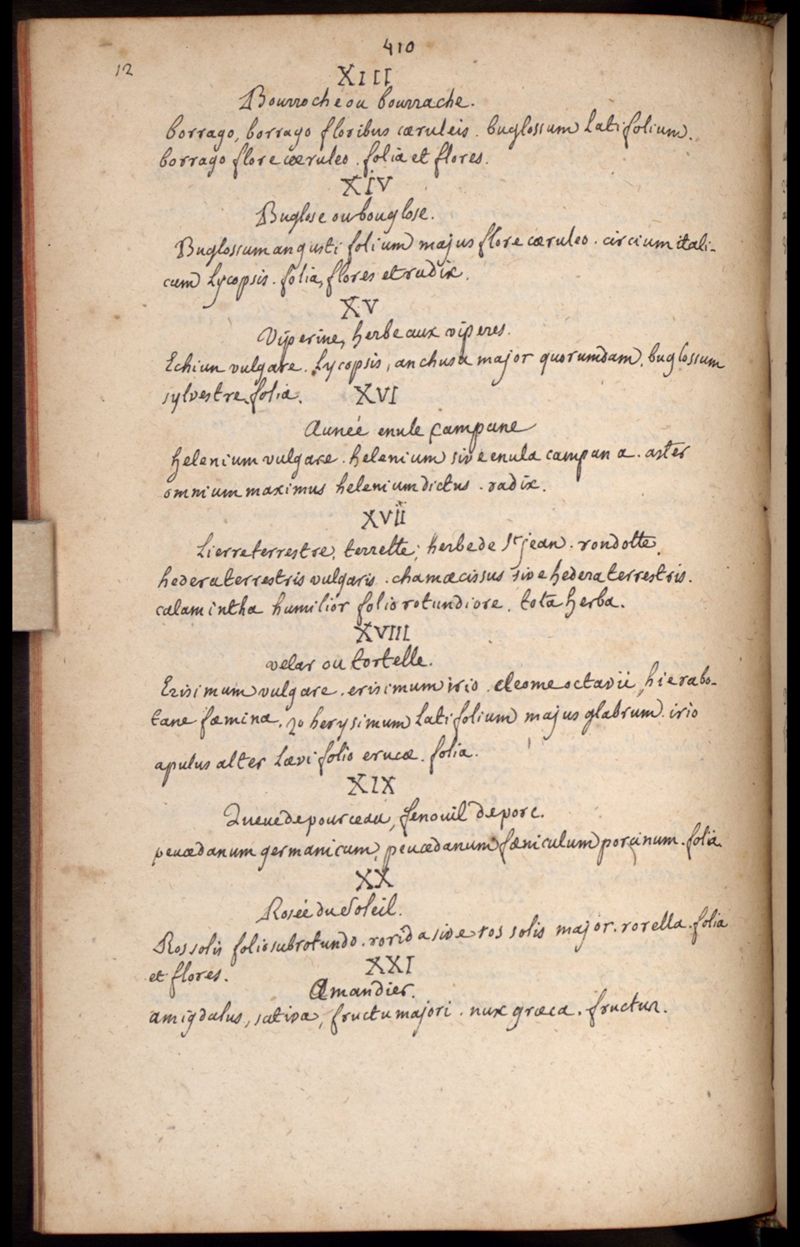 410
12
XIII
Bourroche ou bourrache.
borrago, borrago floribus cæruleis. buglossum latifolium.
borrago flore cæruleo. folia et flores.
XIV
Buglose ou bouglose.
Buglossum angustifolium majus flore cæruleo. circium itali-
cum Lycopsis. folia, flores et radix.
XV
Viperine, herbe aux viperes.
Echiun vulgare. Lycopsis, anchusa major quorumdam. buglossum
sylvestre. folia. XVI
Aunée enule Campane
helenium vulgare. helenium sive enula campana. aster
omnium maximus helenium dictus. radix.
XVII
Lierre terrestre, terrette; herbe de St jean. rondotte,
hedera terrestris vulgaris. chamæcissus sive hedera terrestris.
calamintha humilior folio rotundiore. tota herba.
XVIII
velar ou tortelle.
Erisimum vulgare. erisimum irio. cleome octavii, hierabo-
tane fæmina. herysimum latifolium majus glabrum. irio
apulus alter lævi folio erucæ. folia.
XIX
Queue de pourceau, fenouil de porc.
peucedanum germanicum, peucedanum fœniculum porcinum. folia
XX
Rosée du Soleil.
Ros solis folio subrotundo. rorida sive ros solis major. rorella. folia
et flores. XXI
Amandier.
amigdalus, sativa, fructu majori. nux græca. fructus.